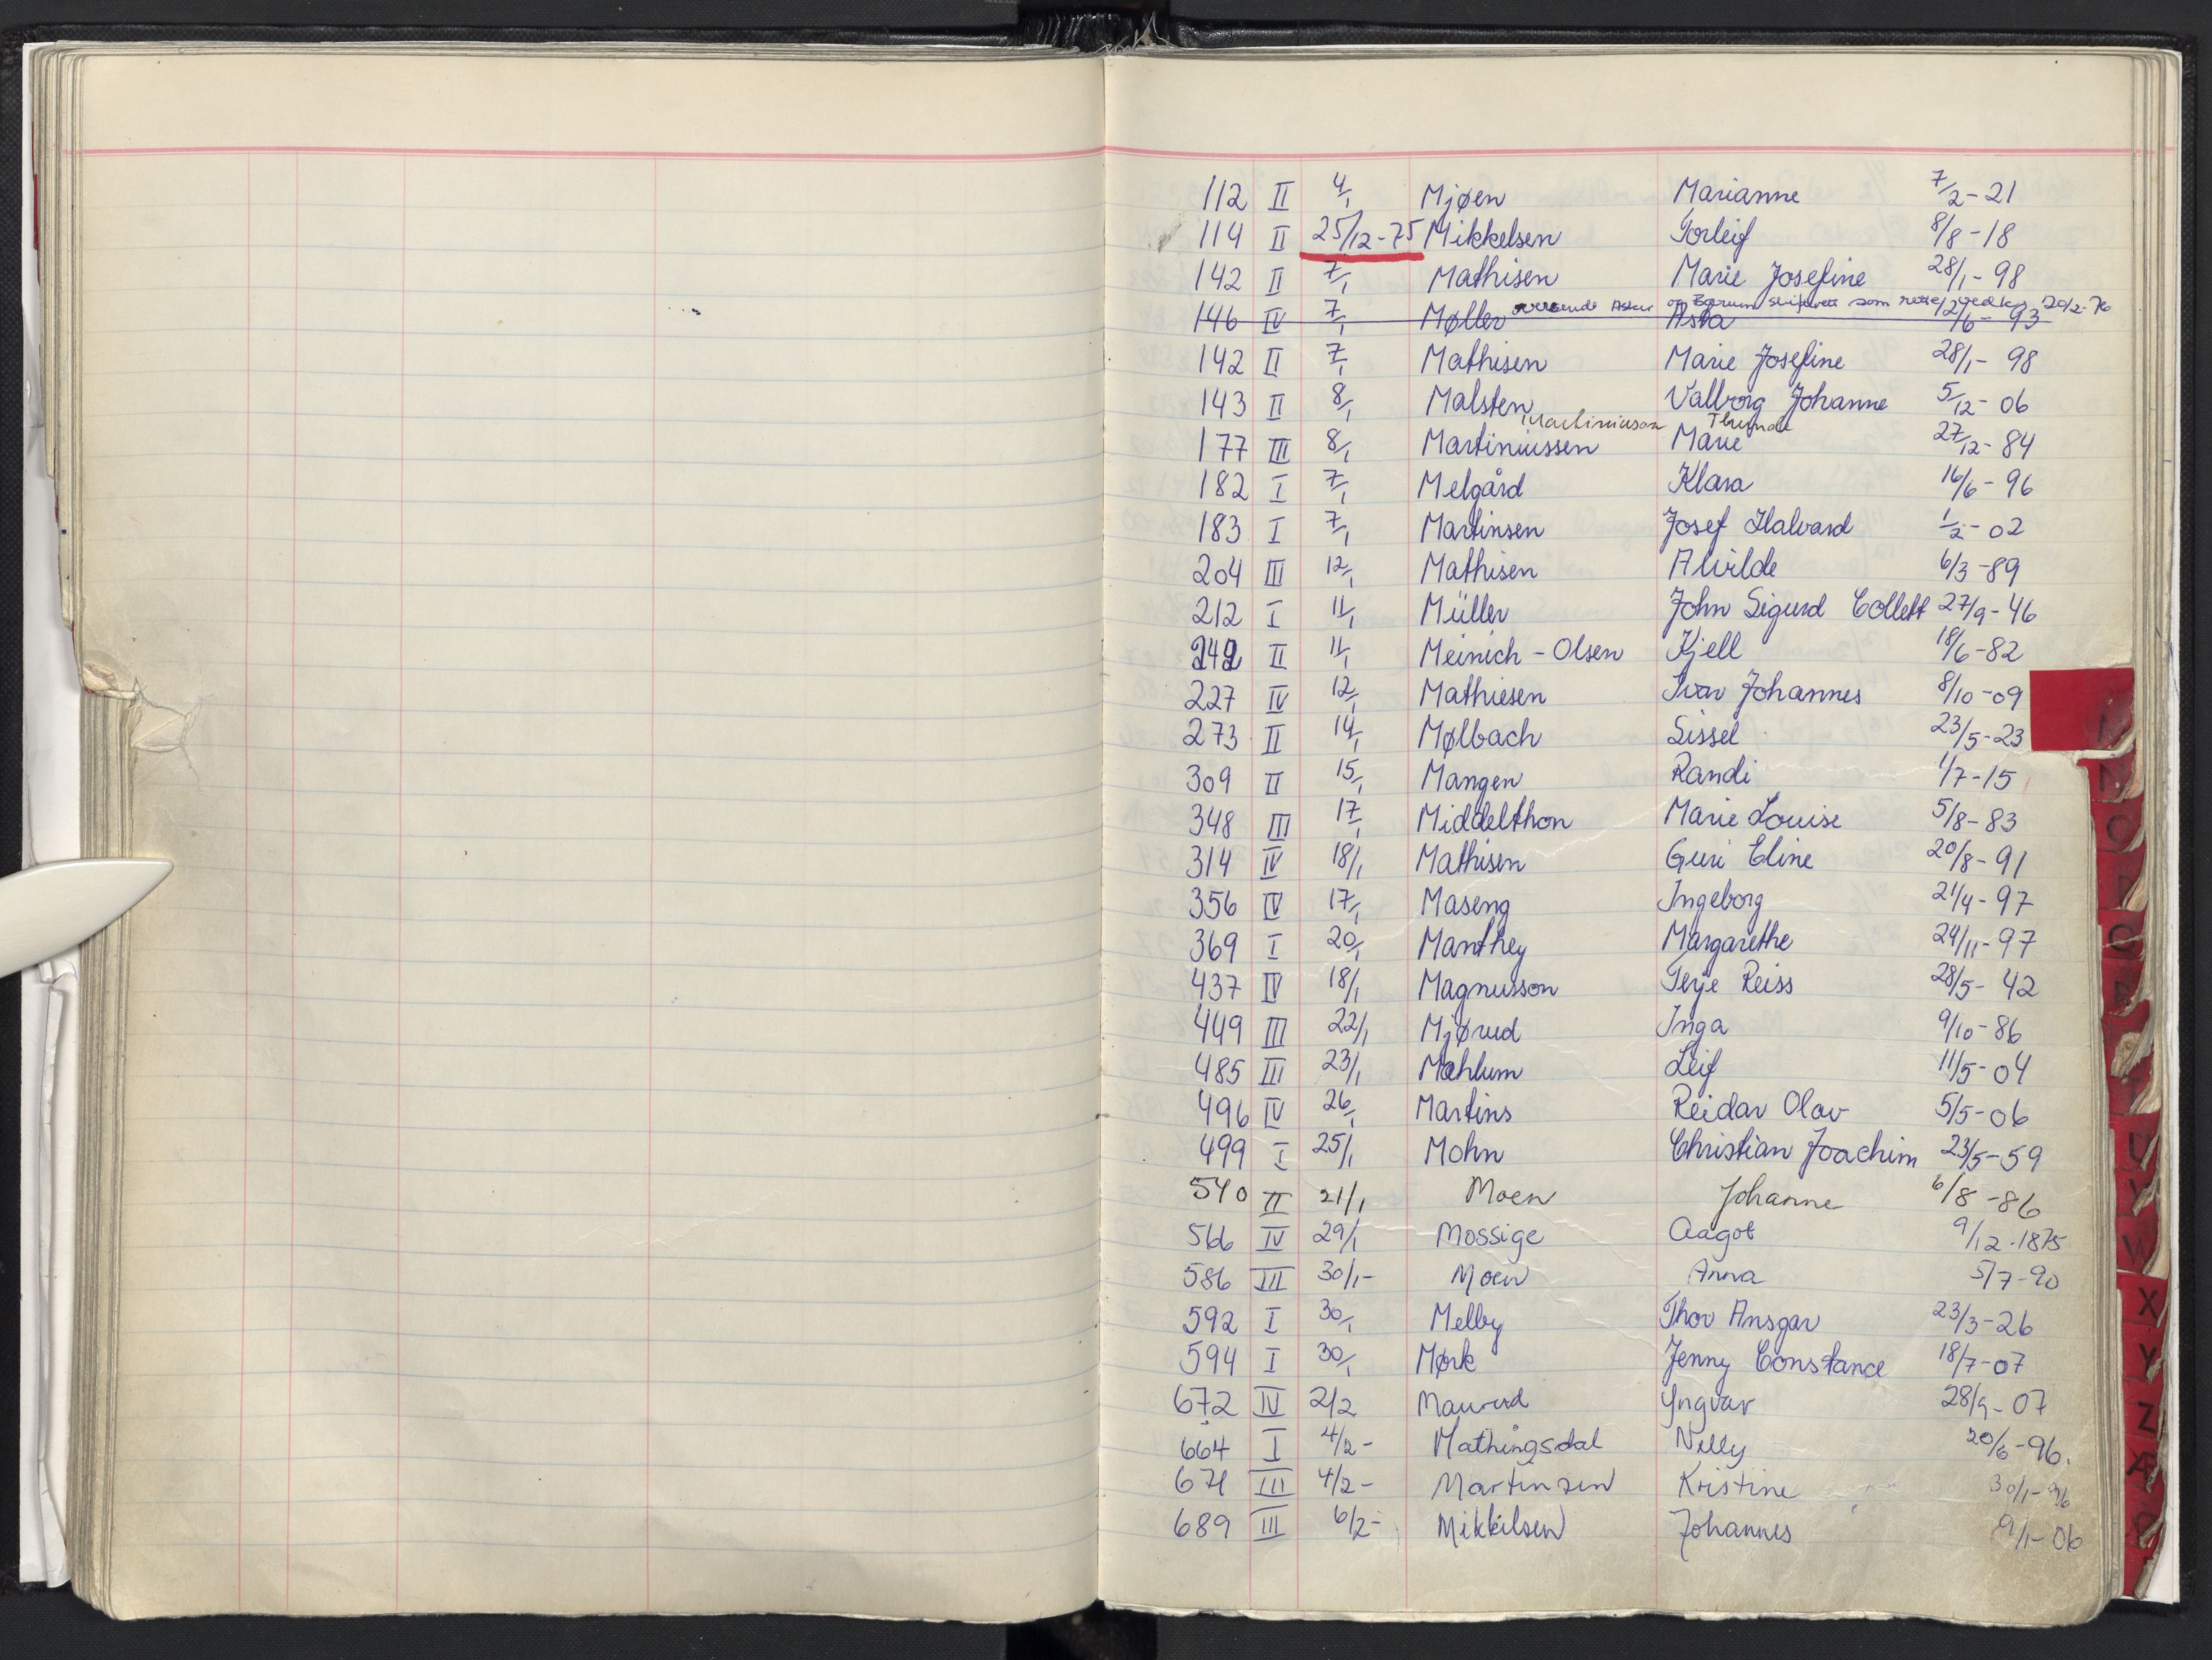 112 II 4/1 Mjøen Marianne 7/2-21
114 II 25/12-75 Mikkelsen Torleif 8/8-18
142 II 7/1 Mathisen Marie Josefine 28/1-98
oversendt Asker og Bærum skifterett som rette vedk. 20/2-76
146 IV 7/1 Møller Asta 12/6-93
142 II 7/1 Mathisen Marie Josefine 28/1-98
143 II 8/1 Malsten Valborg Johanne 5/12-06
Martiniuson
177 III 8/1 Martiniussen Marie 27/12-84
182 I 7/1 Melgård Klara 16/6-96
183 I 7/1 Martinsen Josef Halvard 1/2-02
204 III 12/1 Mathisen Alvilde 6/3-89
212 I 11/1 Müller John Sigurd Collett 27/9-46
242 II 11/1 Meinich-Olsen Kjell 18/6-82
227 IV 12/1 Mathiesen Ivar Johannes 8/10-09
273 II 14/1 Mølbach Sissel 23/5-23
309 II 15/1 Mangen Randi 1/7-15
348 III 17/1 Middelthon Marie Louise 5/8-83
314 IV 18/1 Mathisen Guri Eline 20/8-91
356 IV 17/1 Maseng Ingeborg 21/4-97
369 I 20/1 Manthey Margarethe 24/11-97
437 IV 18/1 Magnusson Terje Reiss 28/5-42
449 III 22/1 Mjørud Inga 9/10-86
485 III 23/1 Mæhlum Leif 11/5-04
496 IV 26/1 Martins Reidar Olav 5/5-06
499 I 25/1 Mohn Christian Joachim 23/5-59
540 II 21/1 Moen Johanne 6/8-86
566 IV 29/1 Mossige Aagot 9/12-1875
586 III 30/1- Moen Anna 5/7-90
592 I 30/1 Melby Thor Ansgar 23/3-26
594 I 30/1 Mørk Jenny Constance 18/7-07
672 IV 2/2 Maurud Yngvar 28/9-07
664 I 4/2- Mathingsdal Nelly 20/6-96.
671 III 4/2- Martinsen Kristine 30/1-96
689 III 6/2- Mikkelsen Johannes 9/1-06
N
O
P
Q
R
T
U
V
W
X
Y
Z
Æ
Ø